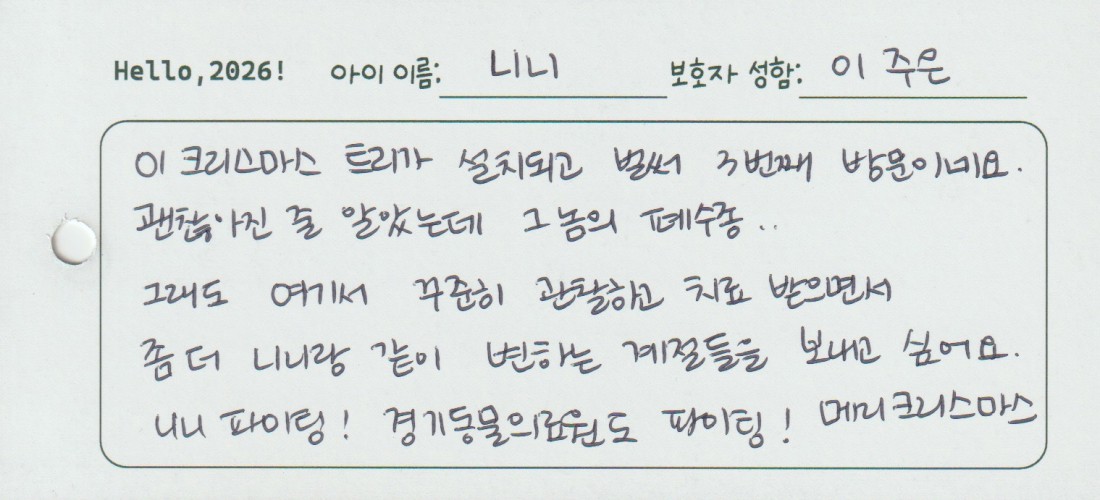 Hello,2026! 아이 이름: 니니 보호자 성함: 이주은
이 크리스마스 트리가 설치되고 벌써 3번째 방문이네요.
괜찮아진 줄 알았는데 그놈의 폐수종..
그래도 여기서 꾸준히 관찰하고 치료 받으면서
좀 더 니니랑 같이 변하는 계절들을 보내고 싶어요.
니니 파이팅! 경기동물의료원도 파이팅! 메리크리스마스